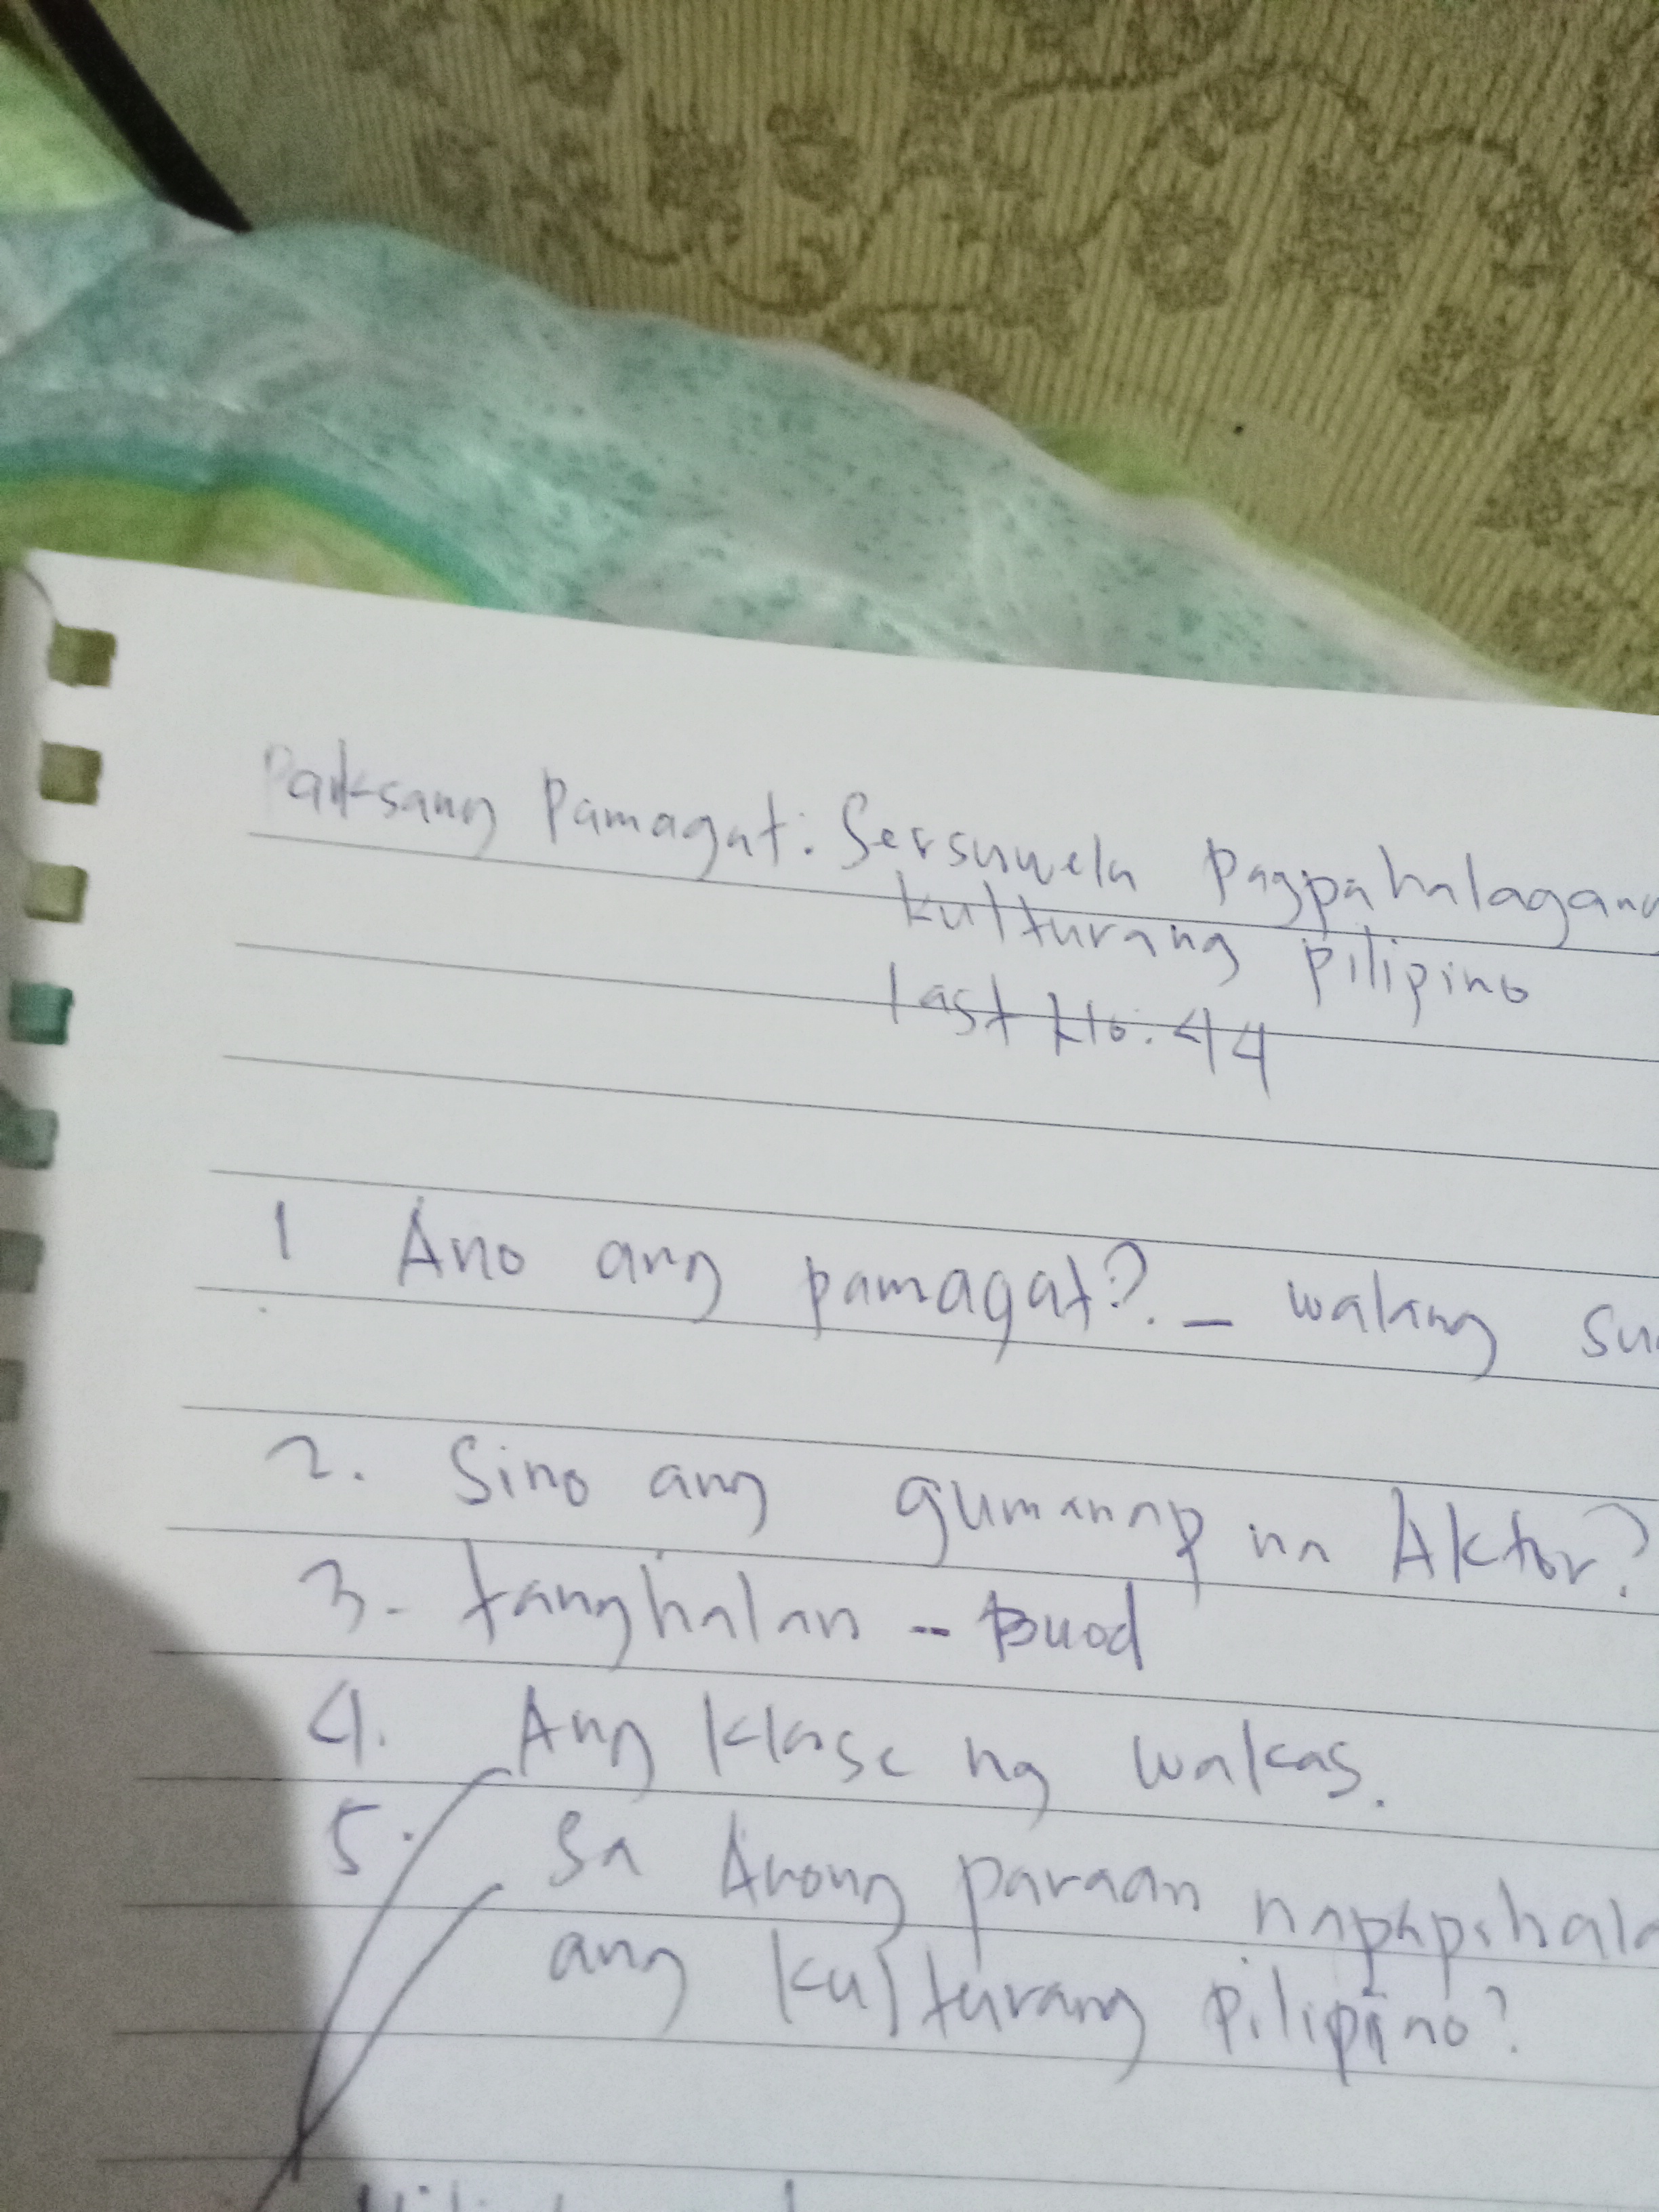 Paksang Pamagat: Sersuwela Pagpahalagang
kulturang pilipino
last No: 44
1 Ano ang pamagat? - walang su
2. Sino ang gumanap na Aktor?
3. tanghalan -- Buod
4. Ang klase ng wakas.
5. Sa Anong paraan napapahala
ang kulturang pilipino?